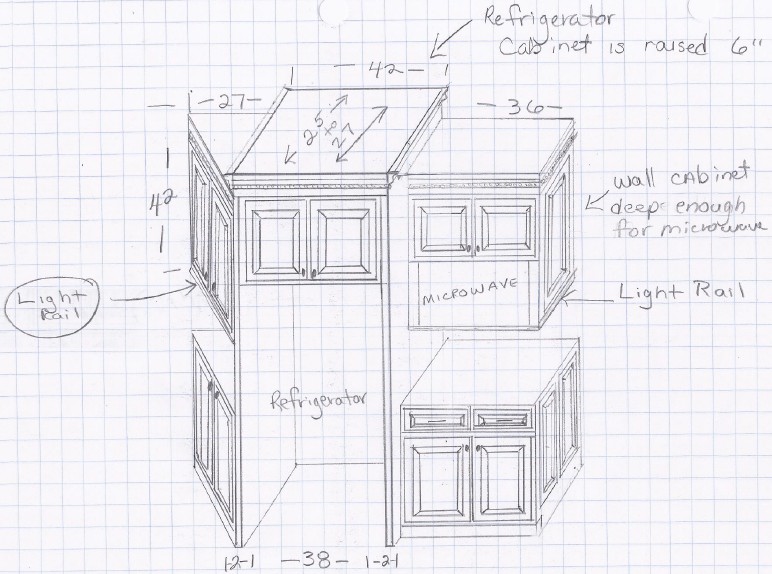 Refrigerator
Cabinet is raised 6"
- 42 -
- 27 -
- 36 -
25 to 27
42
wall cabinet
deep enough
for microwave
Light
Rail
MICROWAVE
Light Rail
Refrigerator
1-2-1 - 38 - 1-2-1